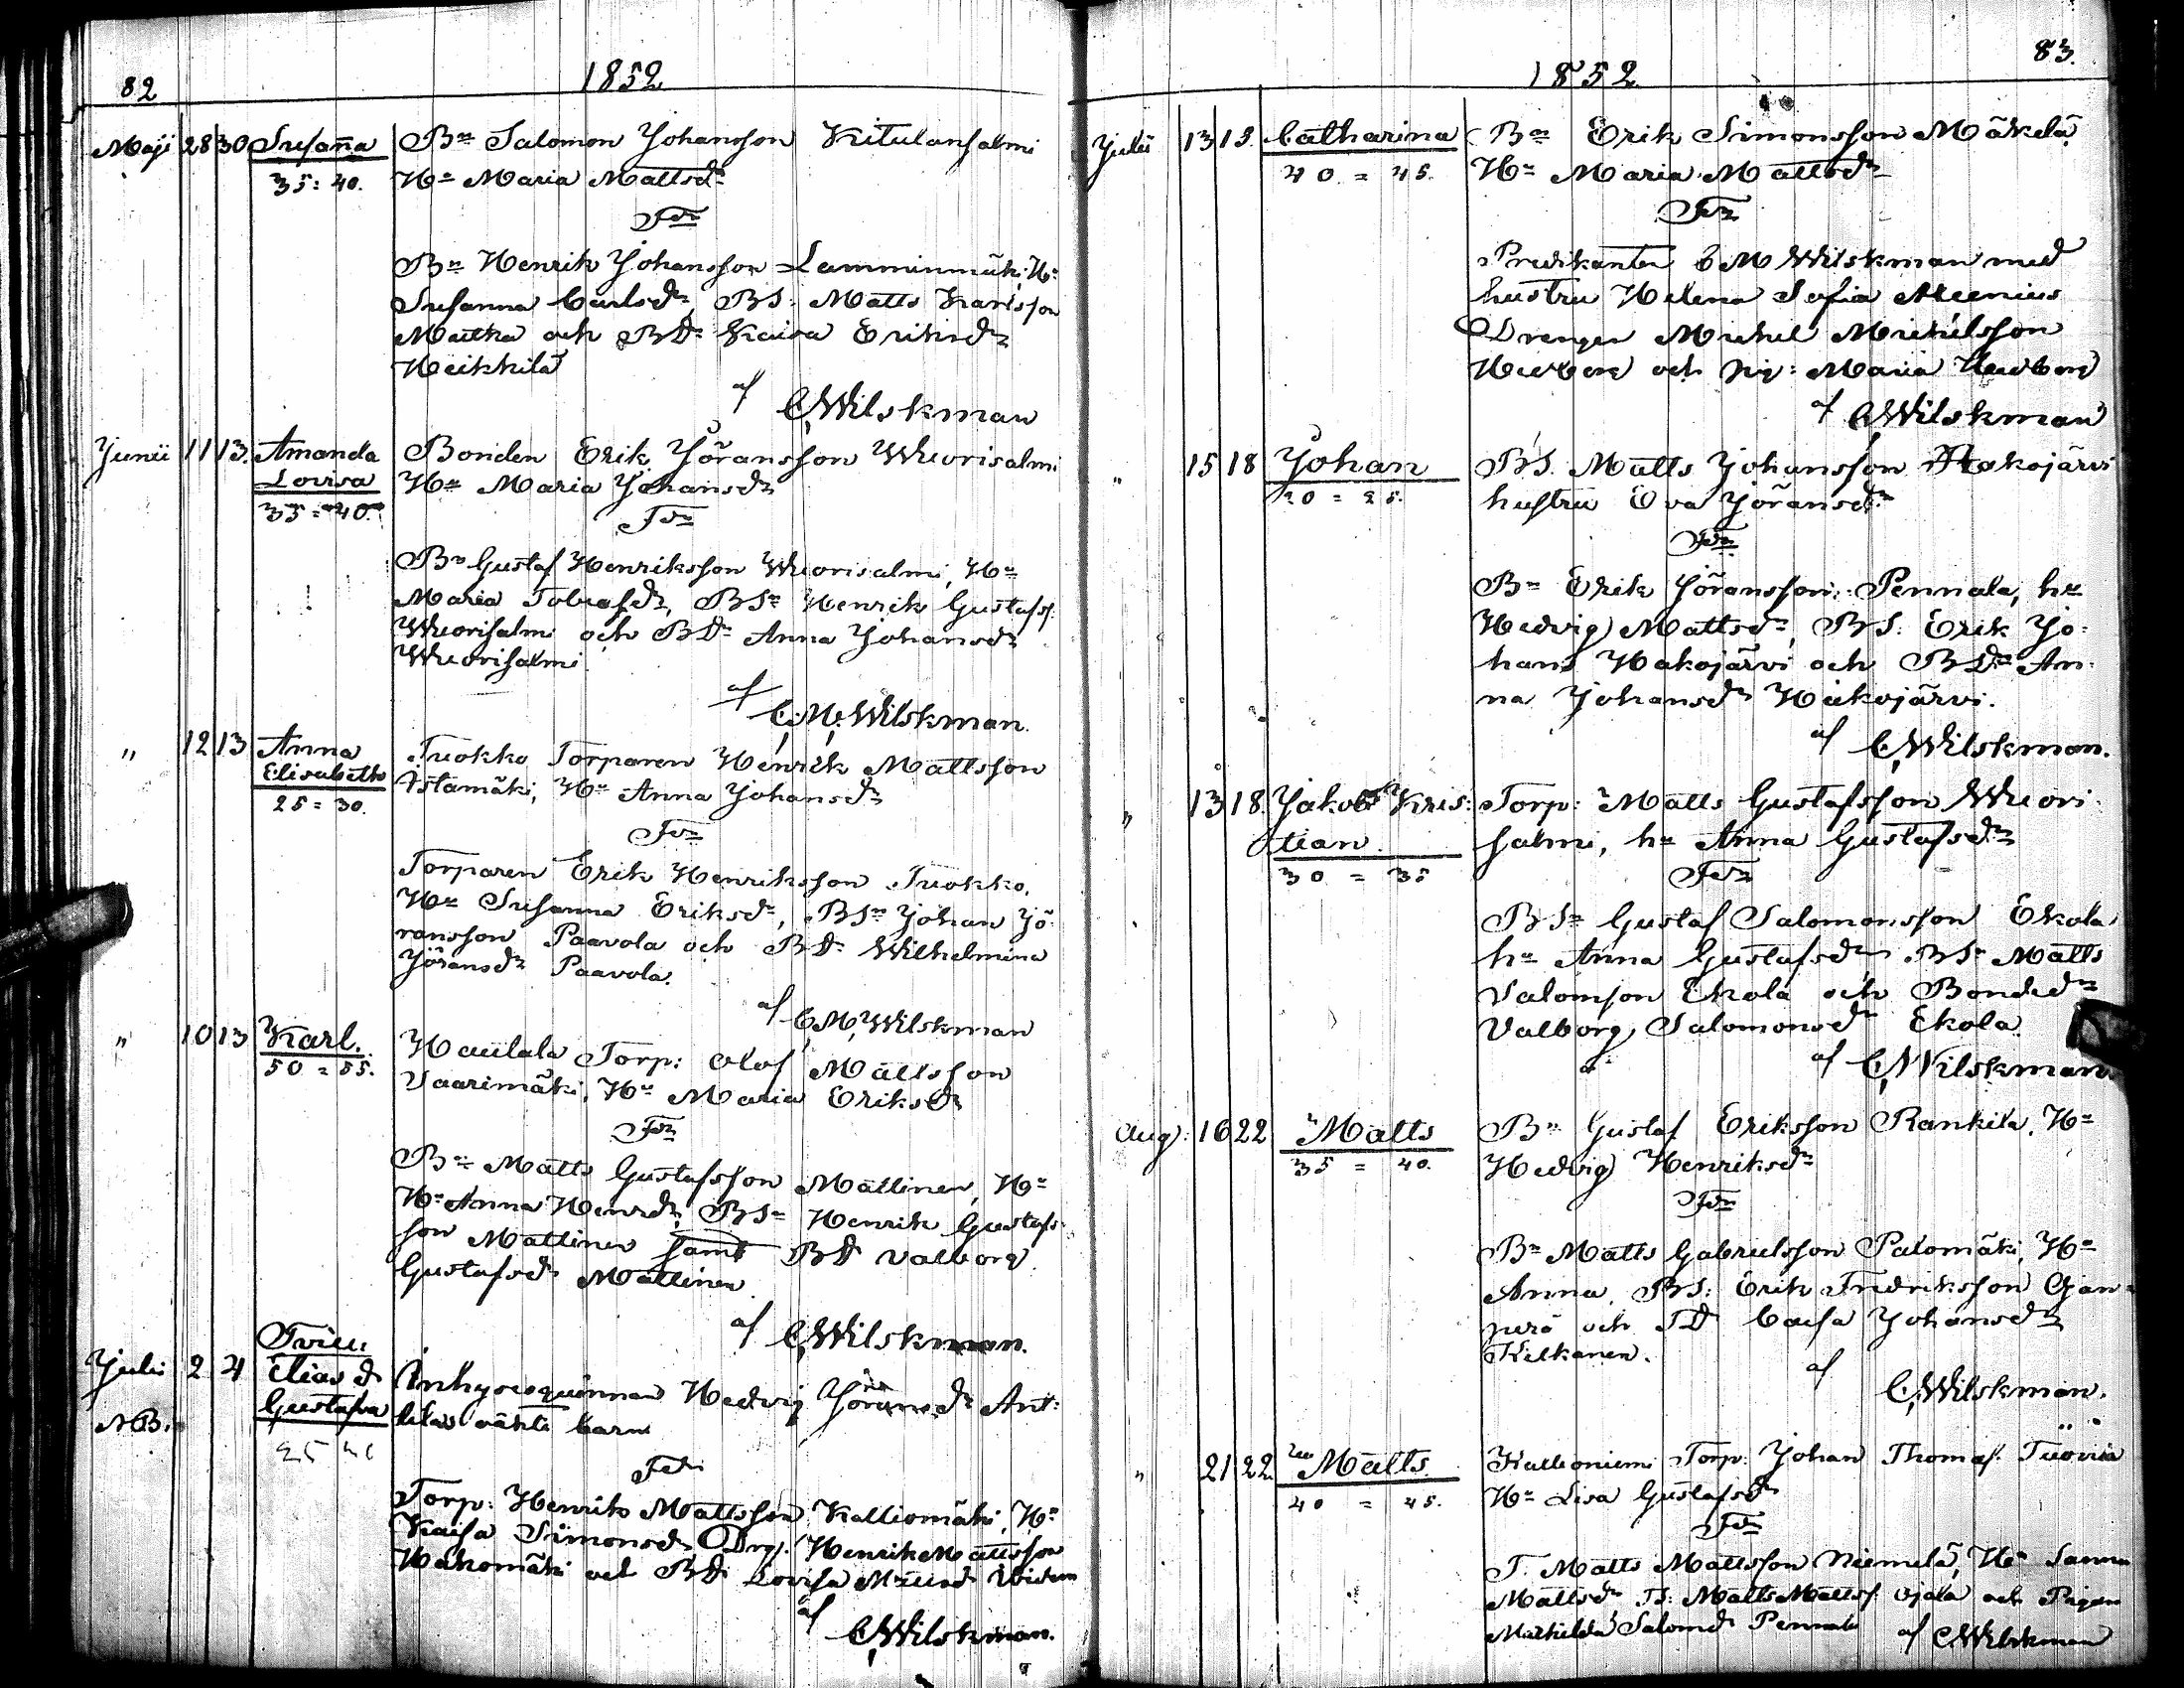 82
1852
Maji 28 30 Susaña Bn Salomon Johansson Kitulansalmi
35 = 40. Hu Maria Mattsdr
Fdr
Bn Henrik Johansson Lamminmäki, Hu
Susanna Carlsdr, BS: Matts Karlsson
Matka och BDr Kaisa Eriksdr
Heikkilä
af CMWilskman
Junii 11 13. Amanda Bonden Erik Jöransson Wuorisalmi
Lovisa Hu Maria Johansdr
35 = 40. Fdr
Bn Gustaf Henriksson Wuorisalmi, Hu
Maria Tobiasdr, BSn Henrik Gustafss.
Wuorisalmi och BDr Anna Johansdr
Wuorisalmi
af C.M.Wilskman.
" 12 13 Anna Tuokko Torparen Henrik Mattsson
Elisabeth Istamäki, Hu Anna Johansdr
25 = 30. Fdr
Torparen Erik Henriksson Tuokko,
Hu Susanna Eriksdr, BSn Johan Jö-
ransson Paavola och BDr Wilhelmina
Jöransdr Paavola.
af C.M.Wilskman
" 10 13 Karl. Haulala Torp: Olof Mattsson
50 = 55. Vaarimäki, Hu Maria Eriksdr
Fdr
Bn Matts Gustafsson Mattinen, Hu
Hu Anna Henrdr, BSn Henrik Gustafs-
son Mattinen samt BD Valborg
Gustafsdr Mattinen
af CMWilskman.
Tvill:
Julii 2 4 Elias & Inhysesqvinnan Hedvig Jöransdr Ant-
NB. Gustafva tilas oäkta barn
Fdr
Torp: Henrik Mattsson Kalliomäki, Hu
Kaisa Simonsdr, Drg: Henrik Mattsson
Hakomäki och BD Lovisa
af CMWilskman.
83.
1852
Julii 13 18. Catharina Bn Erik Simonsson Mäkelä
40. = 45. Hu Maria Mattsdr
Fdr
Predikanten C M Wilskman med
hustru Helena Sofia
Drengen Mickel Mickelsson
Hedborg och Pig: Maria Hedborg
af CMWilskman
" 15 18 Johan BS. Matts Johansson Hakojärvi
20 = 25. hustru Eva Jöransdr
Fdr
Bn Erik Jöransson Pennala, hu
Hedvig Mattsdr, BS: Erik Jo-
hans Hakojärvi och BDr An-
na Johansdr Hakojärvi.
af CMWilskman.
" 13 18. Jakob Kris- Torp: Matts Gustafsson Wuori-
tian. salmi, hu Anna Gustafsdr
30 = 35 Fdr
BSn Gustaf Salomonsson Ekola
hu Anna Gustafsdr BSn Matts
Salomson Ekola och Bondedr
Valborg Salomonsdr Ekola.
af CMWilskman.
Aug: 16 22 Matts Bn Gustaf Eriksson Rankila, Hu
35 = 40. Hedvig Henriksdr
Fdr
Bn Matts Gabrielsson Palomäki, Hu
Anna, BS: Erik Fredriksson Ojan-
perä och TD Caisa Johansdr
Kelkanen.
af CMWilskman.
" 21 22 Matts. Kallioniemi Torp: Johan Thomas.
40 = 45. Hu Lisa Gustafsdr
Fdr
T. Matts Mattsson Niemelä, Hu Sanna
Mattsdr TS: Matts Mattss. Ojala och Pigan
Mathilda Salomdr Pennala
af CMWilskman